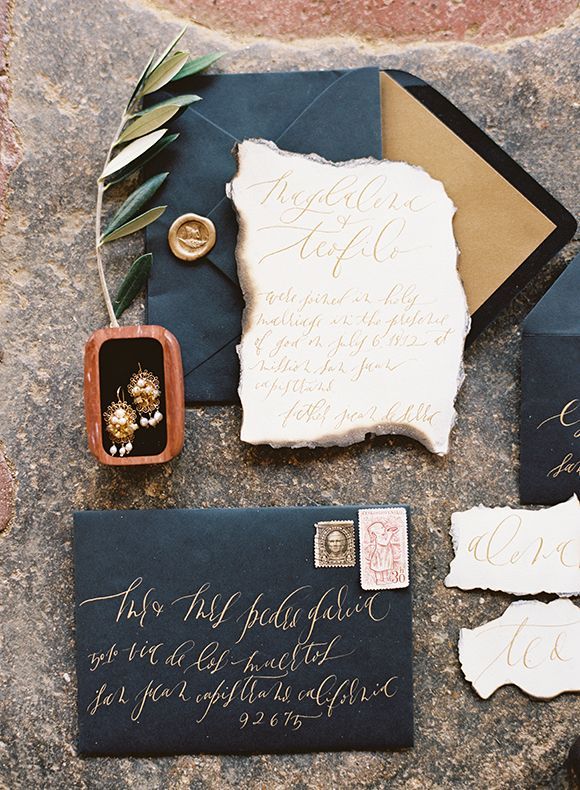 Magdalena
&
Teofilo
were joined in holy
marriage in the presence
of god on July 6 1812 at
mission san juan
capistrano
father juan de serra
alena
teo
Mr & Mrs pedro garcia
via de los muertos
san juan capistrano california
92675
30